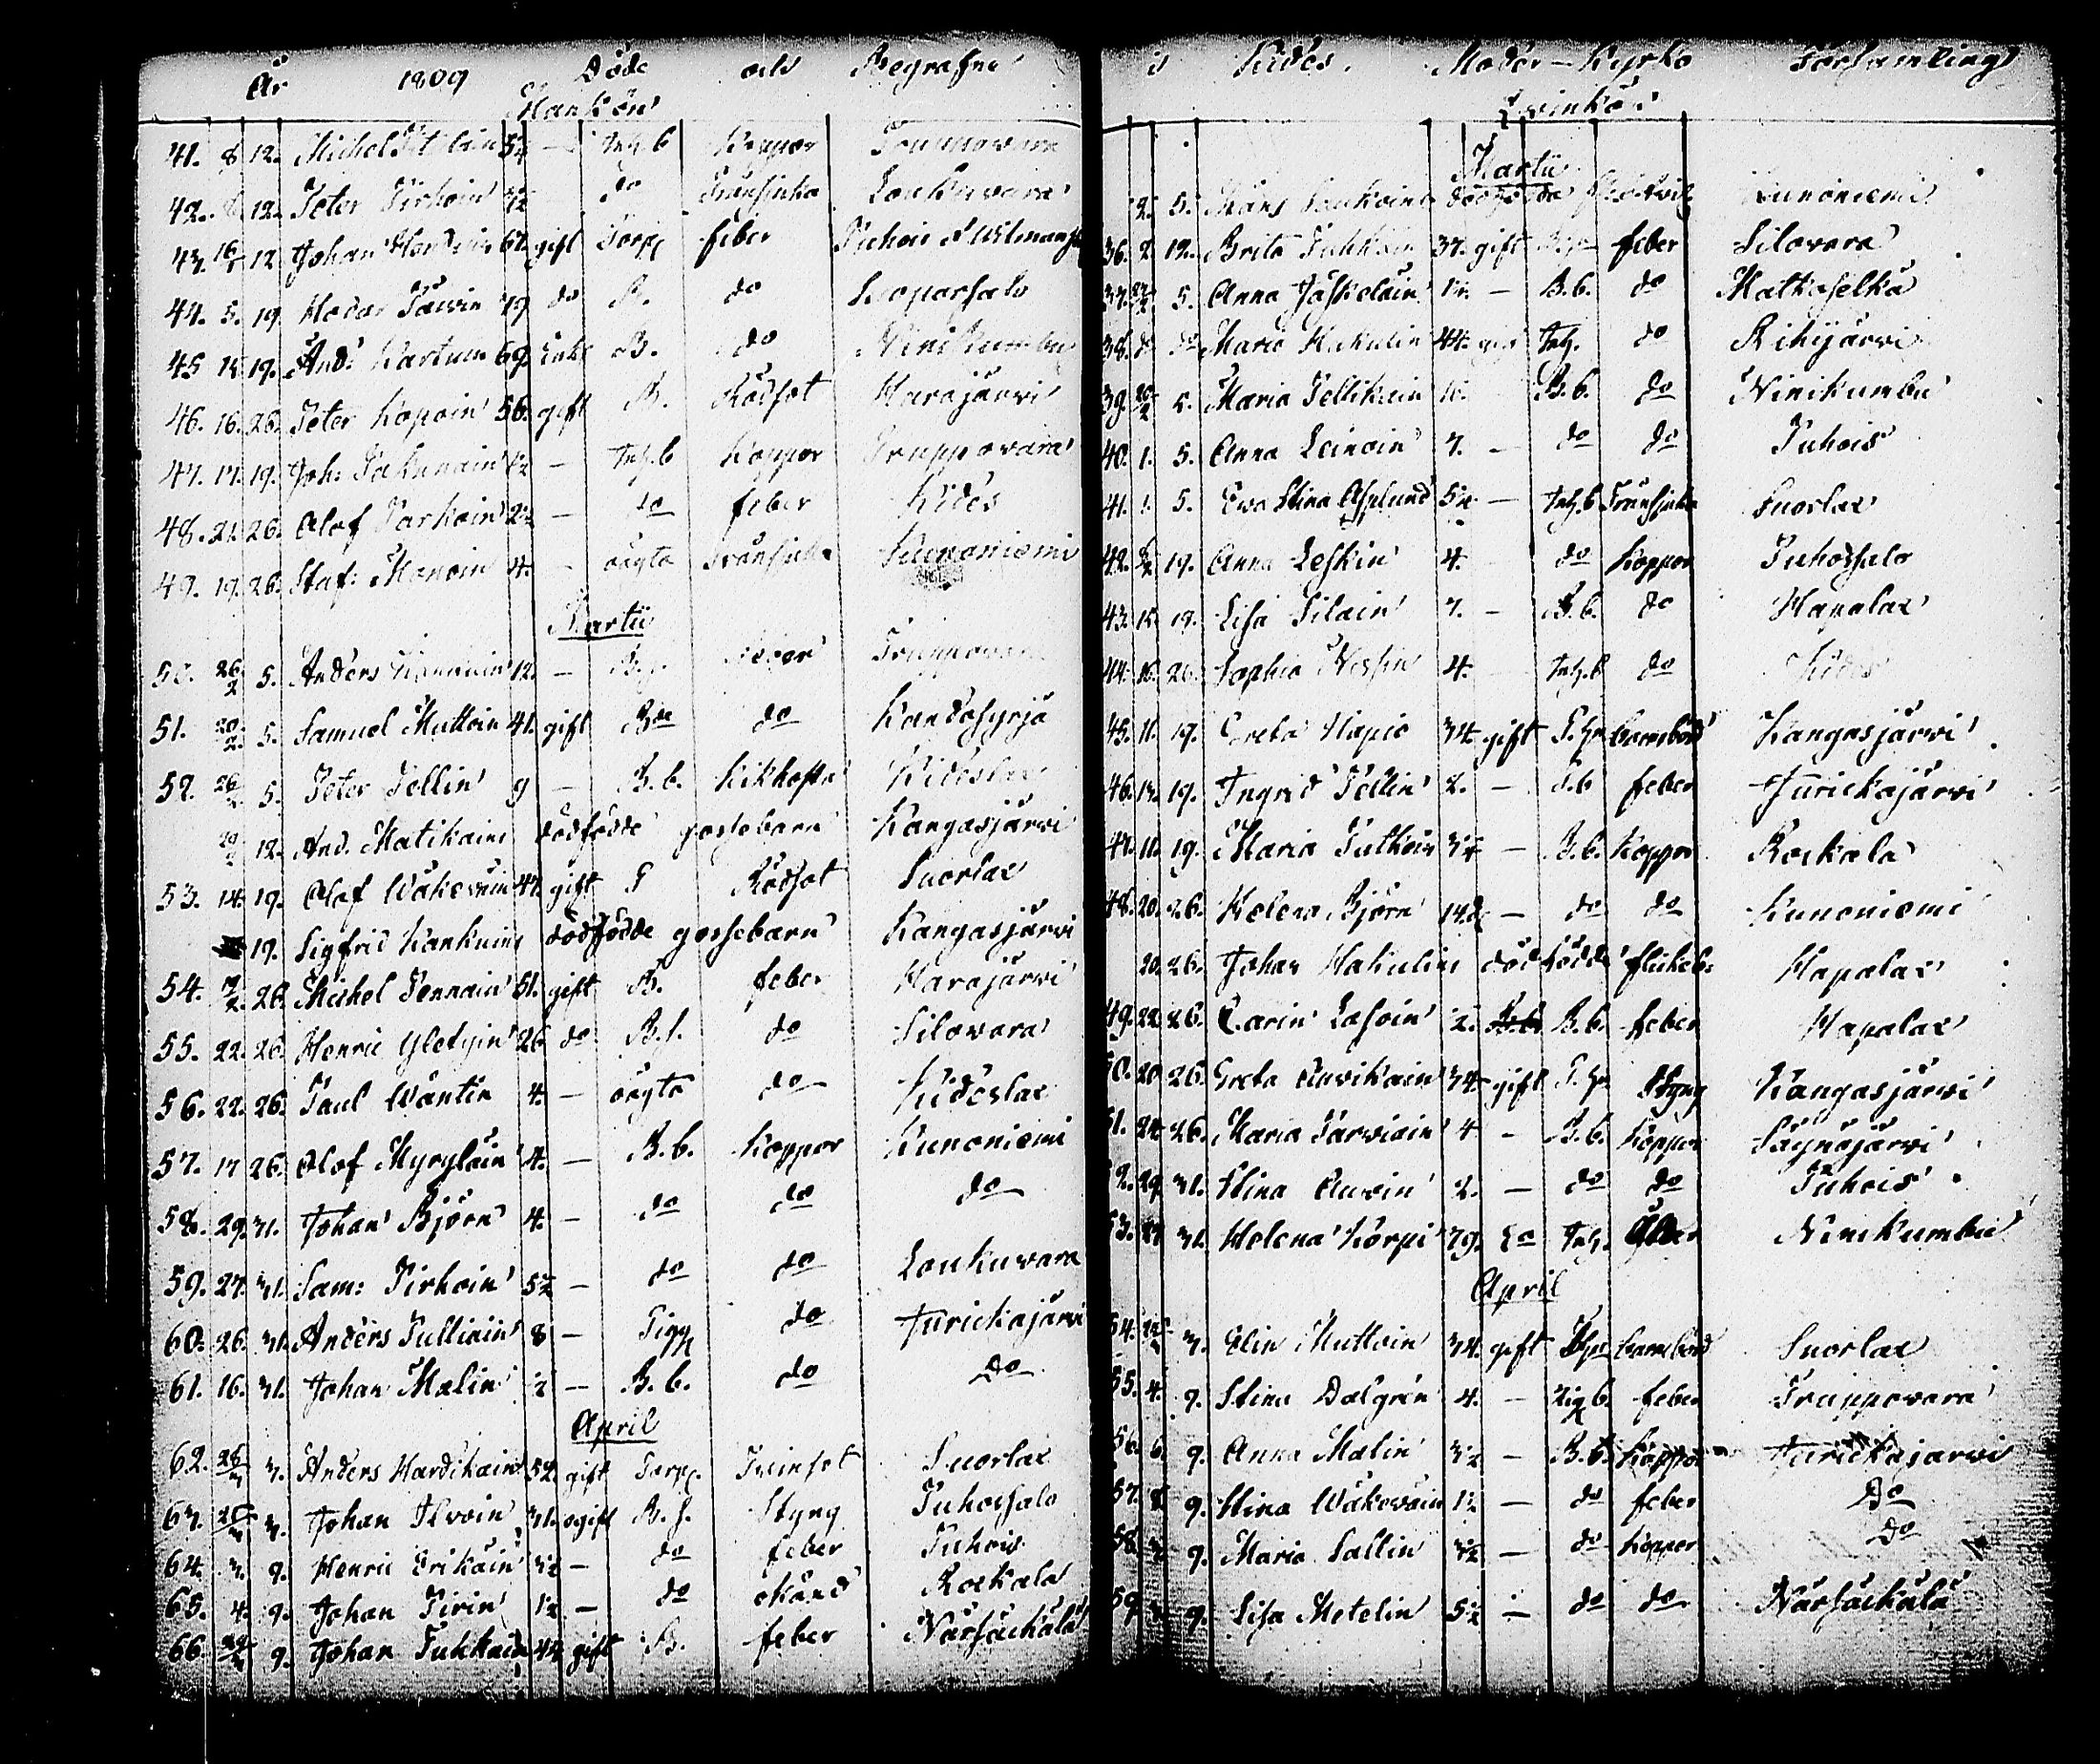 År 1809 Döde och Begrafne
Mankön
41. 8 12. Michel 5 1/2 — Inh. b Koppor Truppovara
42. 12. Peter Pirhoin 1/2 do Tränsjuka Loukuvara
43. 16/1 12 Johan 67. gift Torp. feber Puhois
44. 5. 19. 79 do B. do Koparsalo
45 14 19. And: Kartuin 69. Enkl B. do Ninikumbu
46. 16. 26. Peter Kopoin 56. gift B. Rödsot Harajärvi
47. 17. 19. Joh: Pakunain 1/2 — Inh. b Koppor Truppovara
48. 21. 26. Olof Parkoin 2 1/2 — do feber Kides
49. 19. 26. Staf: Monoin 4. — oägta Tränsjuka Kunoniemi
Martii
50. 26/2 5. Anders 12. — feber Truppovara
51. 20/2 5. Samuel Muttoin 41. gift Bde do Kandosyrjä
52. 26/2 5. Peter Pellin 9 — B. b. Kikhosta Kideslax
12. And. Matikains dödfödde gossebarn Kangasjärvi
53. 14. 19. Olof Wäkeväin 47. gift Rödsot Suorlax
19. Sigfrid Kankuins dödfödde gossebarn Kangasjärvi
54. 26. Michel Pennain 51. gift B. feber Harajärvi
55. 22. 26. Henric Yletyin 26 do B. s. do Silovara
56. 22. 26. Paul Wäntin 4. — oägta do Kideslax
57. 17 26. Olof Myryläin 4. — B. b. Koppor Kunoniemi
58. 29. 31. Johan Björn 4. — do do do
59. 27. 31. Sam: Pirhoin 5 1/2 — do do Loukuvara
60. 26. 31. Anders Tullinin 8 — do Jurickajärvi
61. 16. 31. Johan Malin 1/2 — B. b. do Do
April
62. 28/3 3. Anders Hardikain 52. gift Torp. Tvinsot Suorlax
63. 3. Johan Ilvoin 31. ogift B. s. Styng Puhossalo
64. 3. 9. Henric Erikäin 3 1/2 — do feber Puhois
65. 4. 9. Johan Pirin 1/2 — do okänd Rockala
66. 9. Johan Tukkain 44 gift B. feber Närsäckälä
i Kides Moder-Kyrko Församling
Qvinkön
Martii
2. 5. Måns dödfödde Kunoniemi
36. 2 12. Brita Tukkain 37. gift feber Silovara
37. 5. Anna Jäskeläin — B. b. do Matkaselkä
38. do do Maria Hakulin 44. gift Inh. do Rihijärvi
39. 5. Maria Pellikain B. b. do Niinikumbu
40. 1. 5. Anna Leinoin 7. — do do Puhois
41. 1. 5. Ewa Stina Asplund 5 1/2 — Inh. b Tränsjuka Suorlax
42. 19. Anna Leskin 4. do Koppor Puhossalo
43. 15. 19. Lisa Silain 7. — B. b. do Hapalax
44. 16. 26. Sophia 4. Inh. b do Kides
45. 11. 19. Greta Hapio 34. gift barnsbörd Kangasjärvi
46. 14. 19. Ingrid Pellin 2. — feber Jurickajärvi
47. 11. 19. Maria Putkoin 3 1/2 — B. b. Koppor Rockala
48. 20. 26. Helena Björn — do do Kunoniemi
20. 26. Johan Hakulins dödfödde flickeb. Hapalax
49. 22 26. Carin Lasoin 2. B. b. feber Hapalax
50. 20 26. Greta Auvikain 34 gift Styng Kangasjärvi
51. 24 26. Maria Parviain 4 — B. b. Koppor Säynäjärvi
52. 29. 31. Stina Auvin 2. — do do Puhois
53. 31. Helena Korpi 79. Ea Inh. Niinikumbu
April
54. 3. Elin Muttoin 34. gift barnsbörd Suorlax
55. 4. 9. Stina Dalgren 4. — feber Truppovara
56. 6. 9. Anna Malin 3 1/2 — B. b. Koppor Jurickajarvi
57. 8 9. Stina Wäkeväin 1 1/2 — do feber Do
58. 9. Maria Sallin 3 1/2 — do Koppor Do
59 9. Lisa Metelin 5 1/2 — do do Närsäckälä